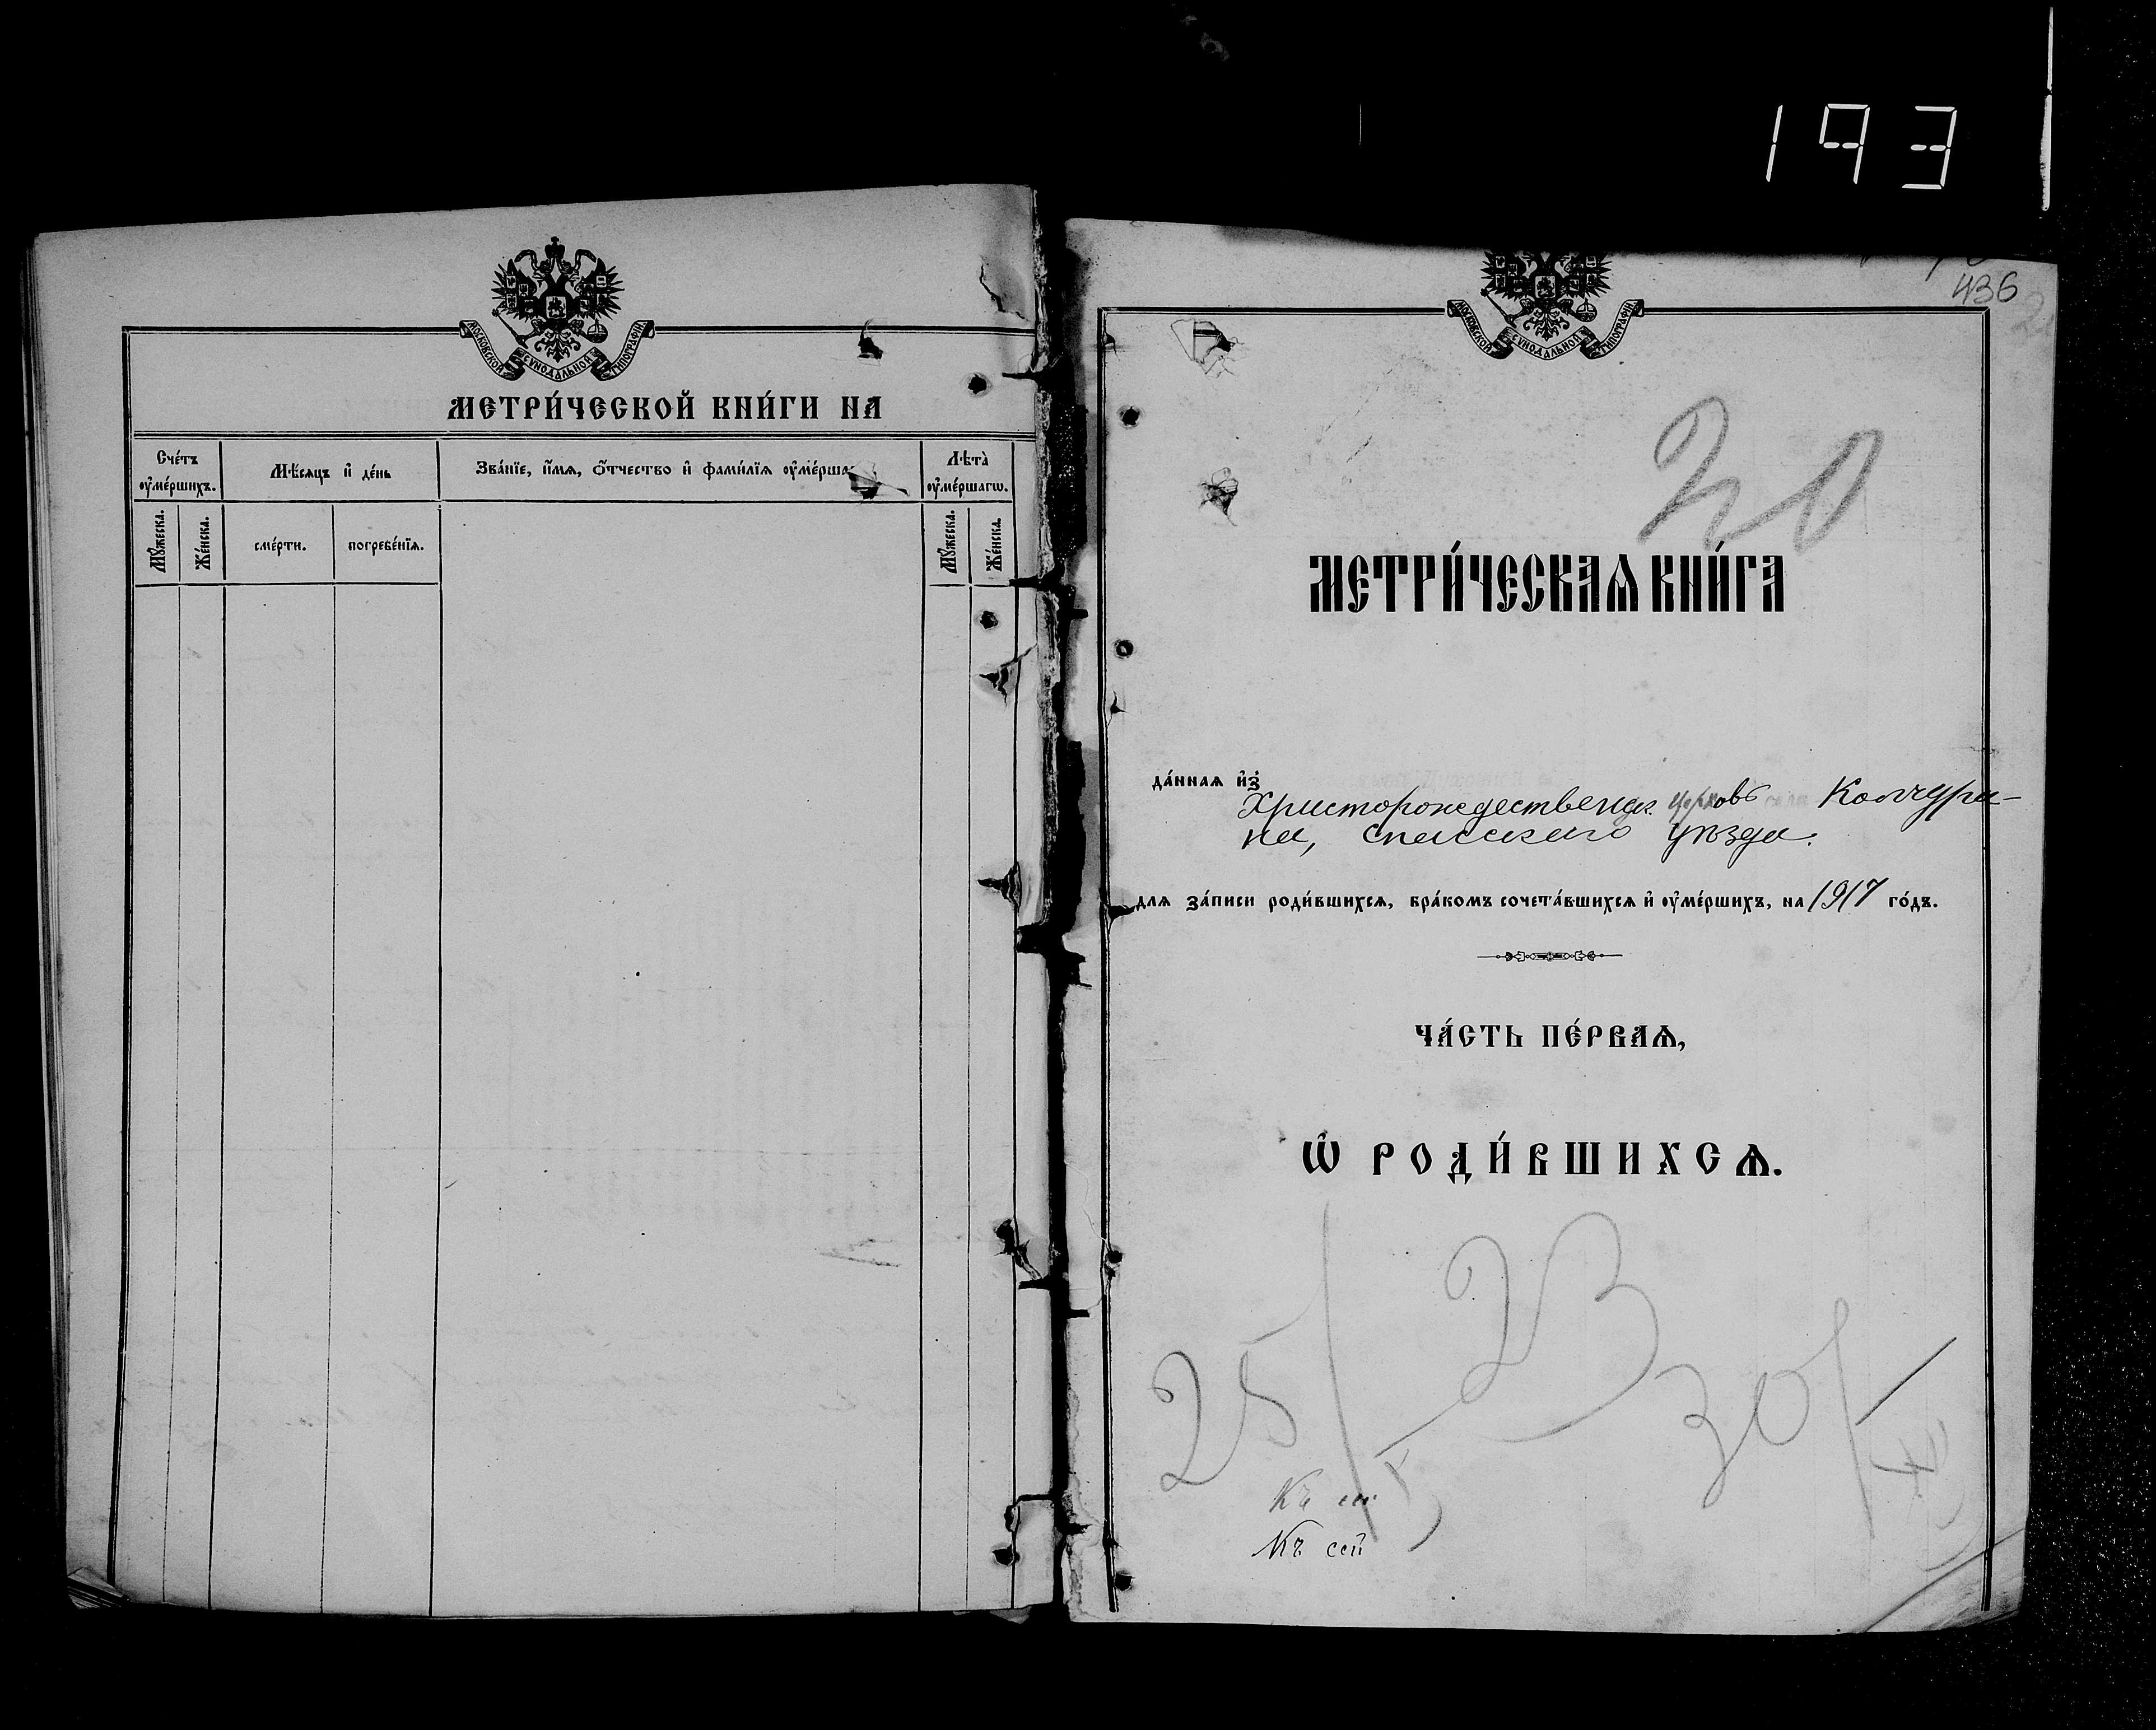 193
МОСКОВСКОЙ СѴНОДАЛЬНОЙ ТИПОГРАФІИ
МЕТРИ́ЧЕСКОЙ КНИ́ГИ НА
Сче́тъ оу҆ме́ршихъ.
Мѣ́сяцъ и҆ де́нь
Зва́нїе, и҆́мѧ, ѻ҆́тчество и҆ фами́лїѧ оу҆ме́рша
Лѣта̀ оу҆ме́ршагѡ.
Мꙋ́жеска.
Же́нска.
сме́рти.
погребе́нїѧ.
Мꙋ́жеска.
Же́нска.
МОСКОВСКОЙ СѴНОДАЛЬНОЙ ТИПОГРАФІИ
436
20
МЕТРИ́ЧЕСКАѦ КНИ́ГА
да́ннаѧ и҆з̾
Христорождественск. церковь села Колчури-
на, Спасскаго уѣзда.
длѧ за́писи роди́вшихсѧ, бра́комъ сочета́вшихсѧ и҆ оу҆ме́ршихъ, на 1917 го́дъ.
ЧА́СТЬ ПЕ́РВАѦ,
Ѡ҆ РОДИ́ВШИХСѦ.
25/
23
30/
Къ
Къ сей